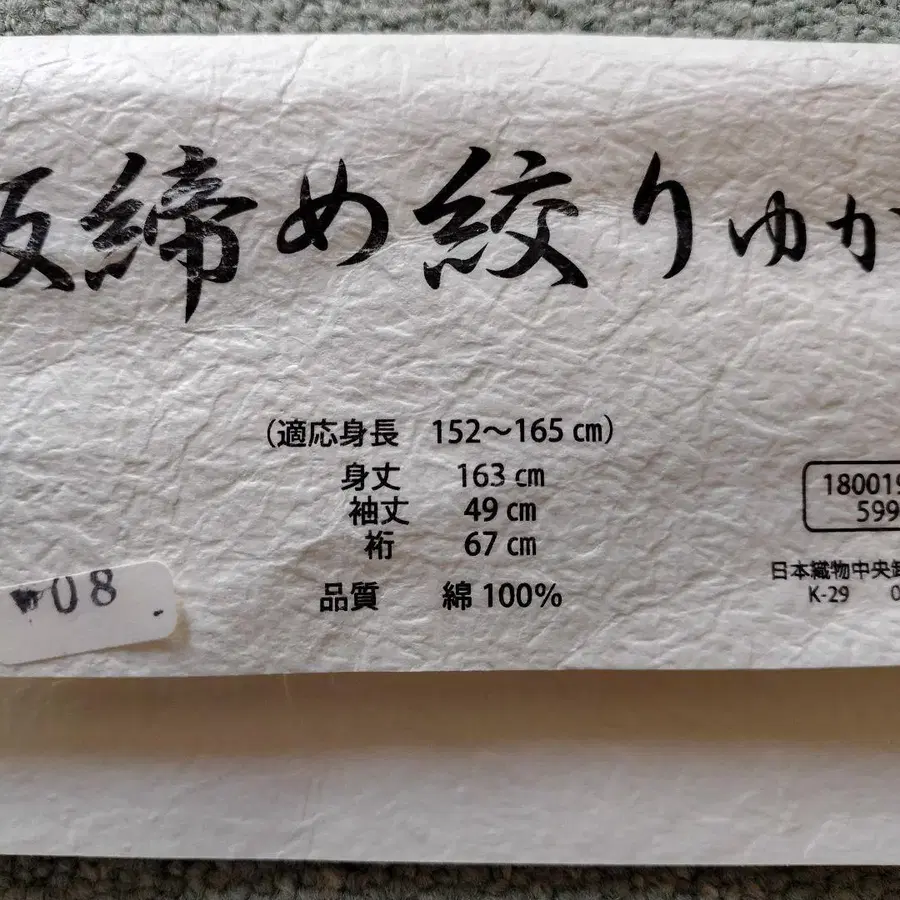 板締め絞りゆか
(適応身長 152～165㎝)
身丈 163㎝
袖丈 49㎝
裄 67㎝
品質 綿100%
180019
599
日本織物中央卸
K-29 0
08